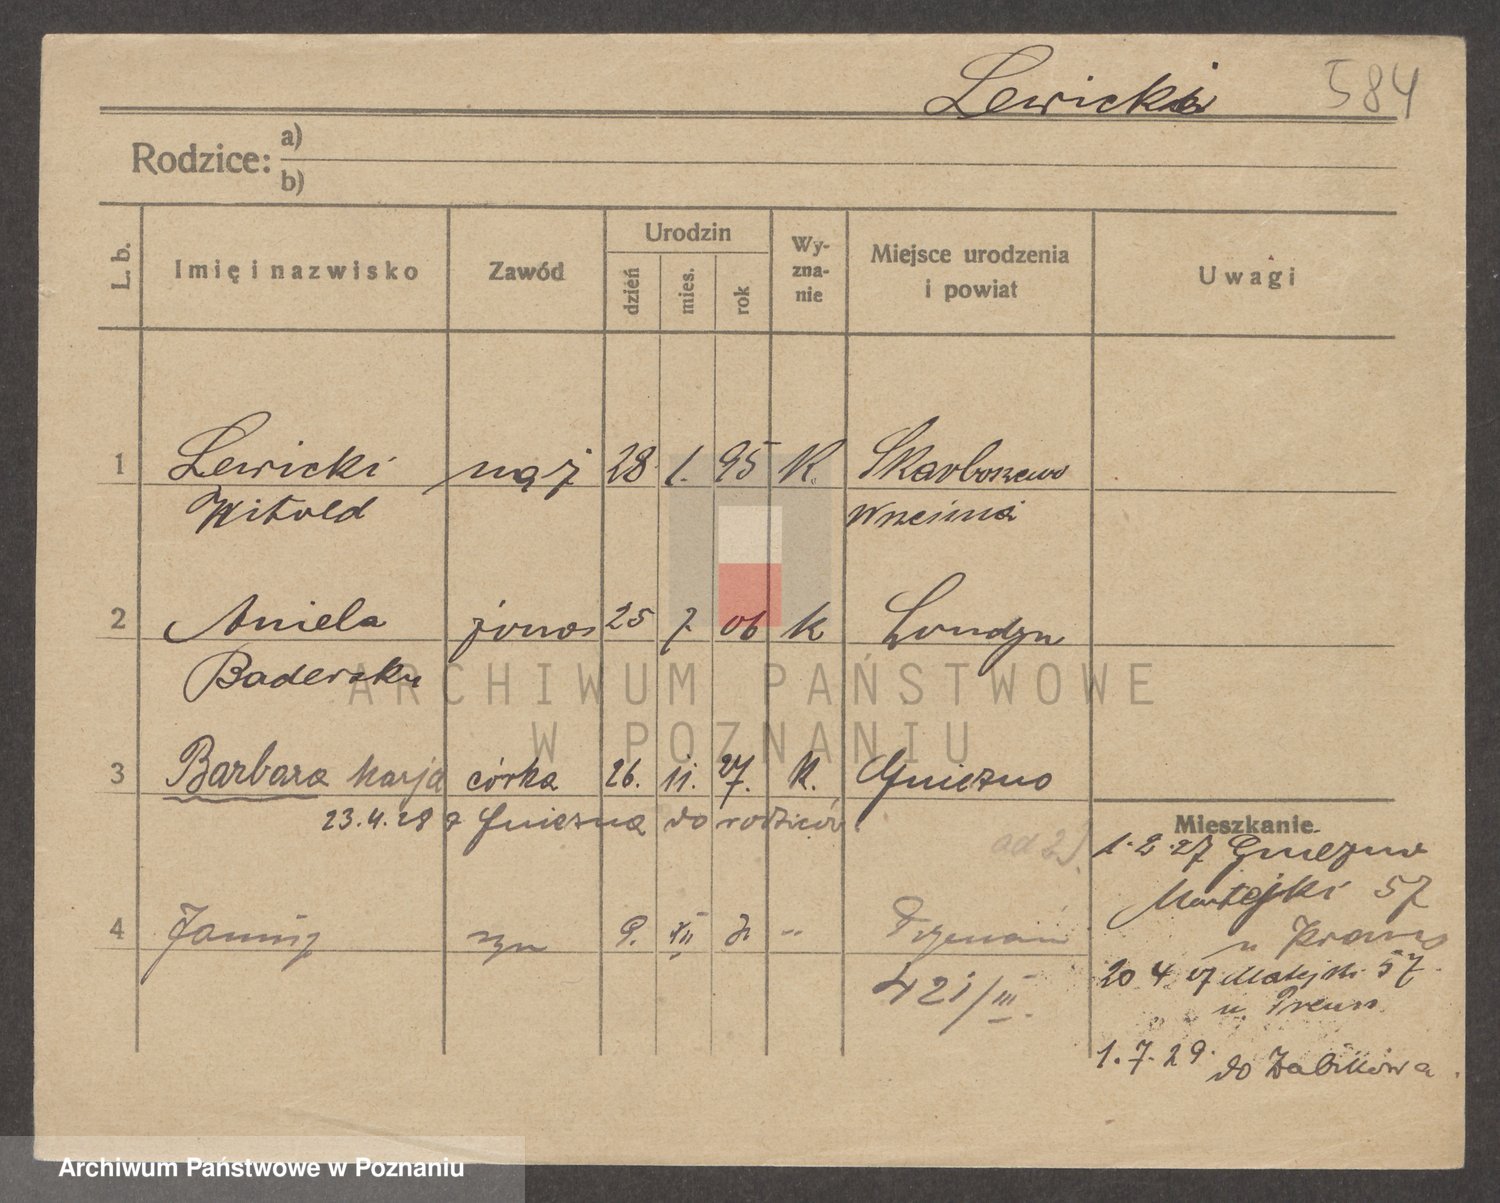 Lewicki 584
Rodzice: a)
b)
L. b. Imię i nazwisko Zawód Urodzin dzień mies. rok Wy-zna-nie Miejsce urodzenia i powiat Uwagi
1 Lewicki mąż 28 1. 95 K. Skarboszewo
Witold Września
2 Aniela żona 25 7. 06 K Londyn
Baderska
ARCHIWUM PAŃSTWOWE
W POZNANIU
3 Barbara Marja córka 26. 11. 27. K. Gniezno
23.4.28 z Gniezna do rodziców
Mieszkanie
1.2.27 Gniezno
Matejki 57
4 syn 9. XII -"-
20 4 27 Matejki 57
u
421/III.
1.7.29. do Żabikowa.
Archiwum Państwowe w Poznaniu